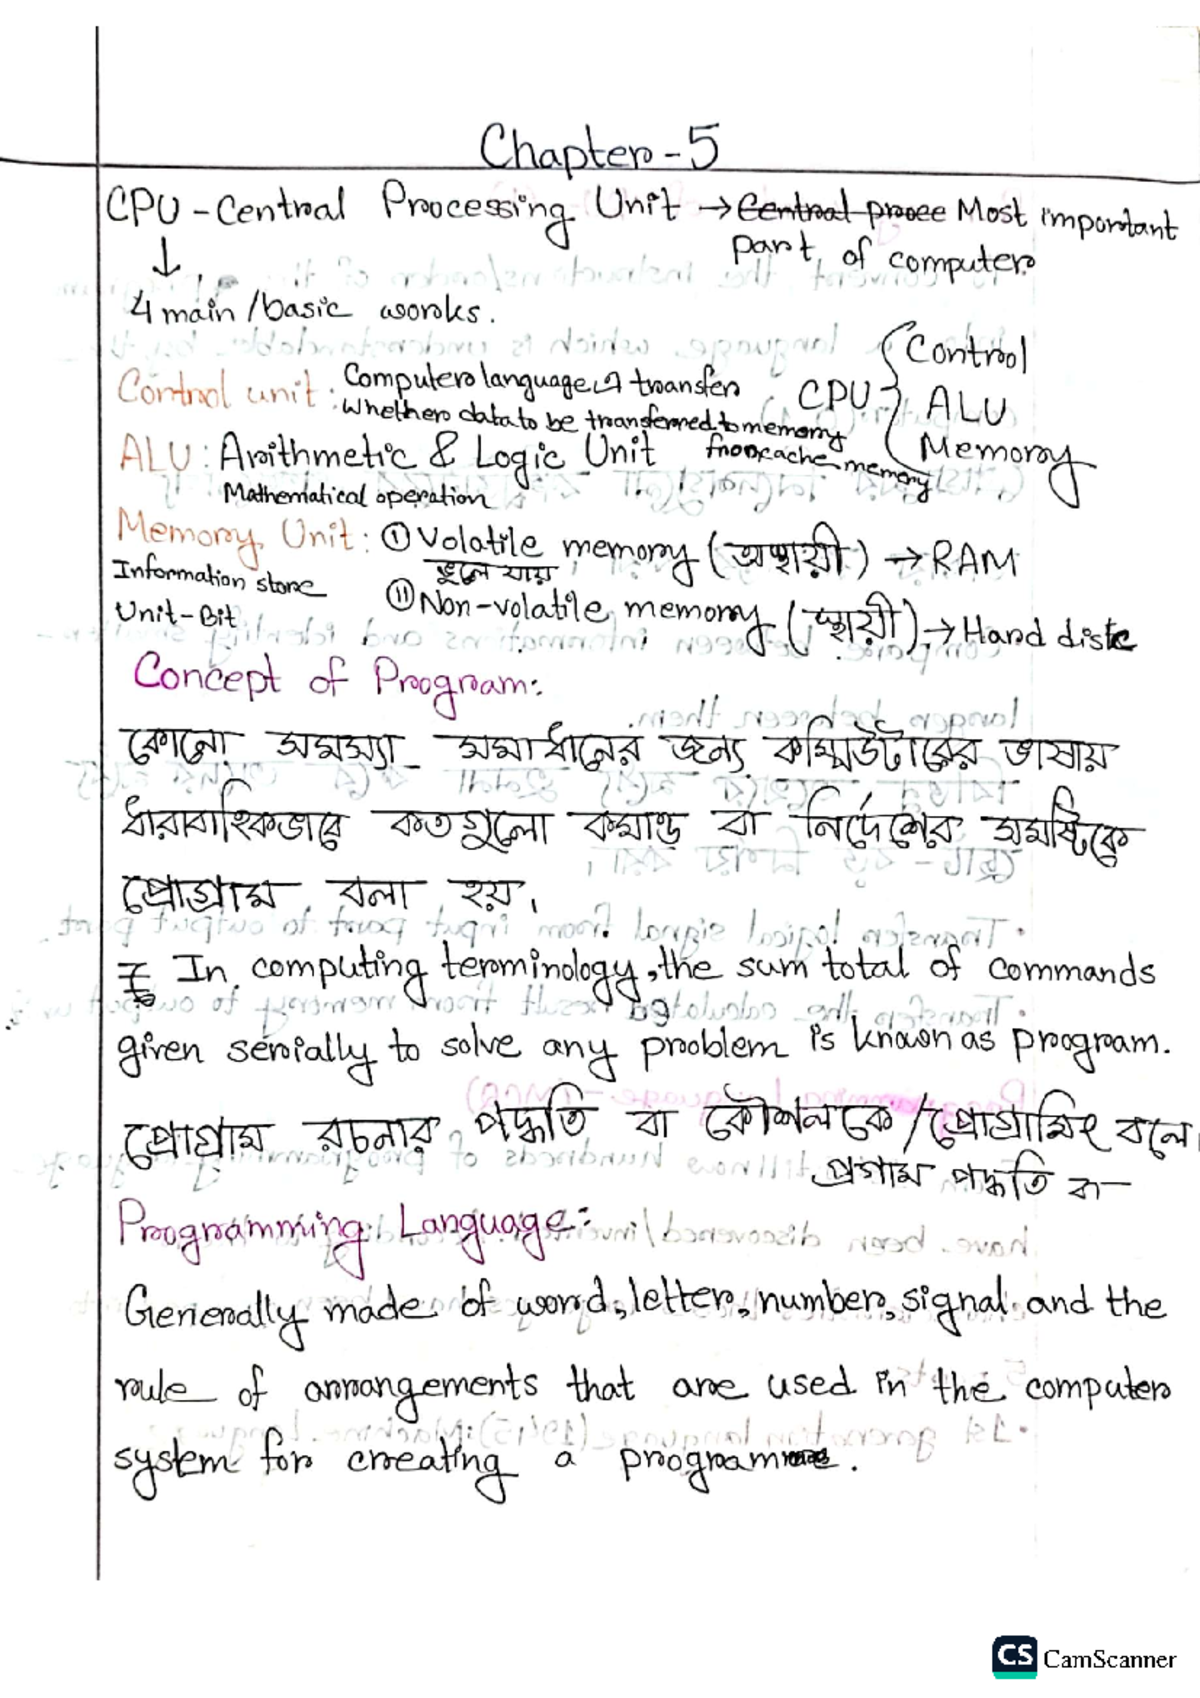 Chapter-5
CPU - Central Processing Unit → Central proce Most important
part of computer
↓
4 main/basic works.
Control unit: Computer language এ transfer
Whether data to be transferred to memory
from cache memory
CPU { Control
ALU
Memory
ALU: Arithmetic & Logic Unit
Mathematical operation
Memory Unit: ① Volatile memory (অস্থায়ী) → RAM
ভুলে যায়
Information store
ⓘⓘ Non-volatile memory (স্থায়ী) → Hard disk
Unit-Bit
Concept of Program:
কোনো সমস্যা সমাধানের জন্য কম্পিউটারের ভাষায়
ধারাবাহিকভাবে কতগুলো কমান্ড বা নির্দেশের সমষ্টিকে
প্রোগ্রাম বলা হয়।
In computing terminology, the sum total of commands
given serially to solve any problem is known as program.
প্রোগ্রাম রচনার পদ্ধতি বা কৌশলকে / প্রোগ্রামিং বলে।
প্রগাম পদ্ধতি বা
Programming Language:
Generally made of word, letter, number, signal and the
rule of arrangements that are used in the computer
system for creating a program.
CS CamScanner